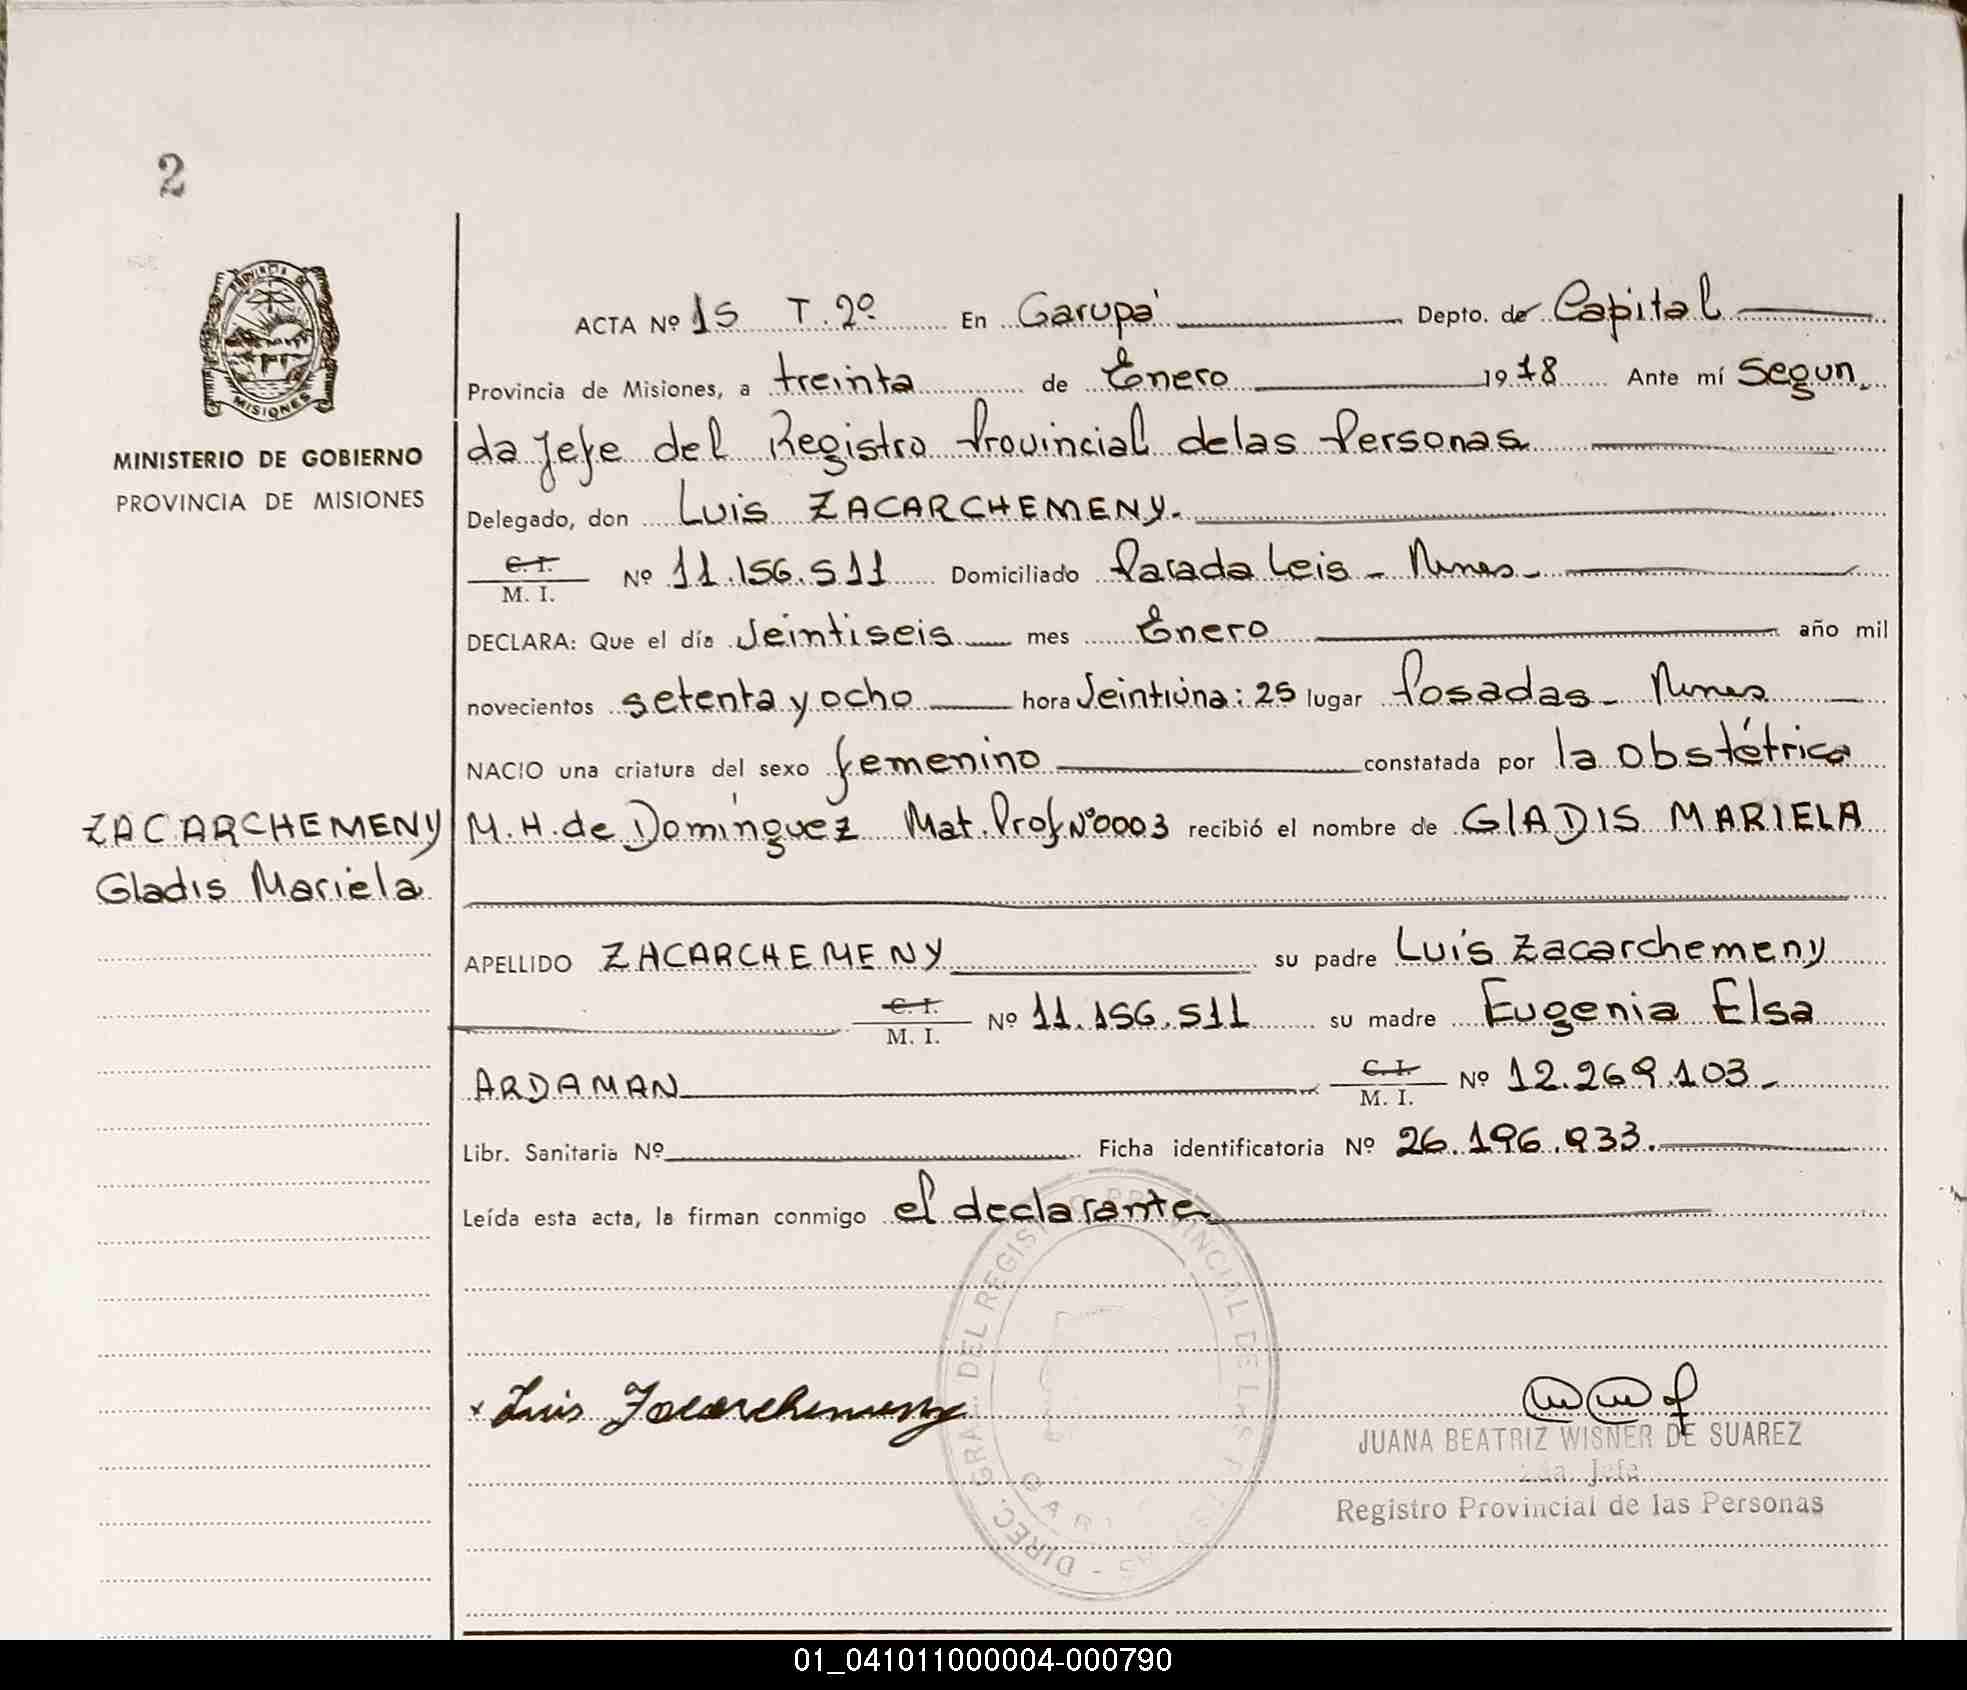 2
PROVINCIA DE
MISIONES
MINISTERIO DE GOBIERNO
PROVINCIA DE MISIONES
ACTA Nº 15 T.2º En Garupá Depto. de Capital
Provincia de Misiones, a treinta de Enero 1978 Ante mí Segun
da Jefe del Registro Provincial de las Personas
Delegado, don Luis ZACARCHEMENY.
C. I.
M. I. Nº 11.156.511 Domiciliado Parada Leis - Mnes-
DECLARA: Que el día Veintiseis mes Enero año mil
novecientos setenta y ocho hora Veintiúna: 25 lugar Posadas - Mnes
NACIO una criatura del sexo femenino constatada por la Obstétrica
ZACARCHEMENY
Gladis Mariela
M.H. de Domínguez Mat. Prof Nº0003 recibió el nombre de GlADIS MARIELA
APELLIDO ZACARCHEMENY su padre Luis Zacarchemeny
C. I.
M. I. Nº 11.156.511 su madre Eugenia Elsa
ARDAMAN C. I.
M. I. Nº 12.269.103-
Libr. Sanitaria Nº Ficha identificatoria Nº 26.196.933.
Leída esta acta, la firman conmigo el declarante
Luis Zacarchemeny
JUANA BEATRIZ WISNER DE SUAREZ
2da. Jefa
Registro Provincial de las Personas
DIREC. GRAL. DEL REGISTRO PROVINCIAL DE LAS
01_041011000004-000790